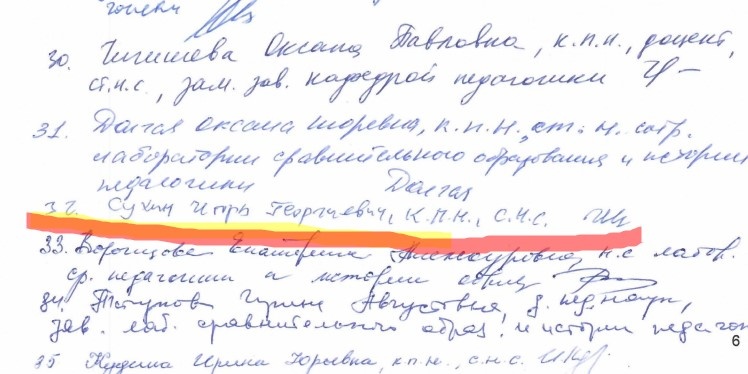 гоньевич
30. Чигишева Оксана Павловна, к.п.н., доцент,
ст.н.с., зам. зав. кафедрой педагогики
31. Долгая Оксана Игоревна, к.п.н., ст. н. сотр.
лаборатории сравнительного образования и истории
педагогики Долгая
32. Сухин Игорь Георгиевич, к.п.н., с.н.с.
33. Екатерина н.с лабор.
ср. педагогики и истории
34. Августовна, д. пед. наук,
зав. лаб. сравнительного образ. и истории педагог
6
35 Ирина Юрьевна, к.п.н., с.н.с.